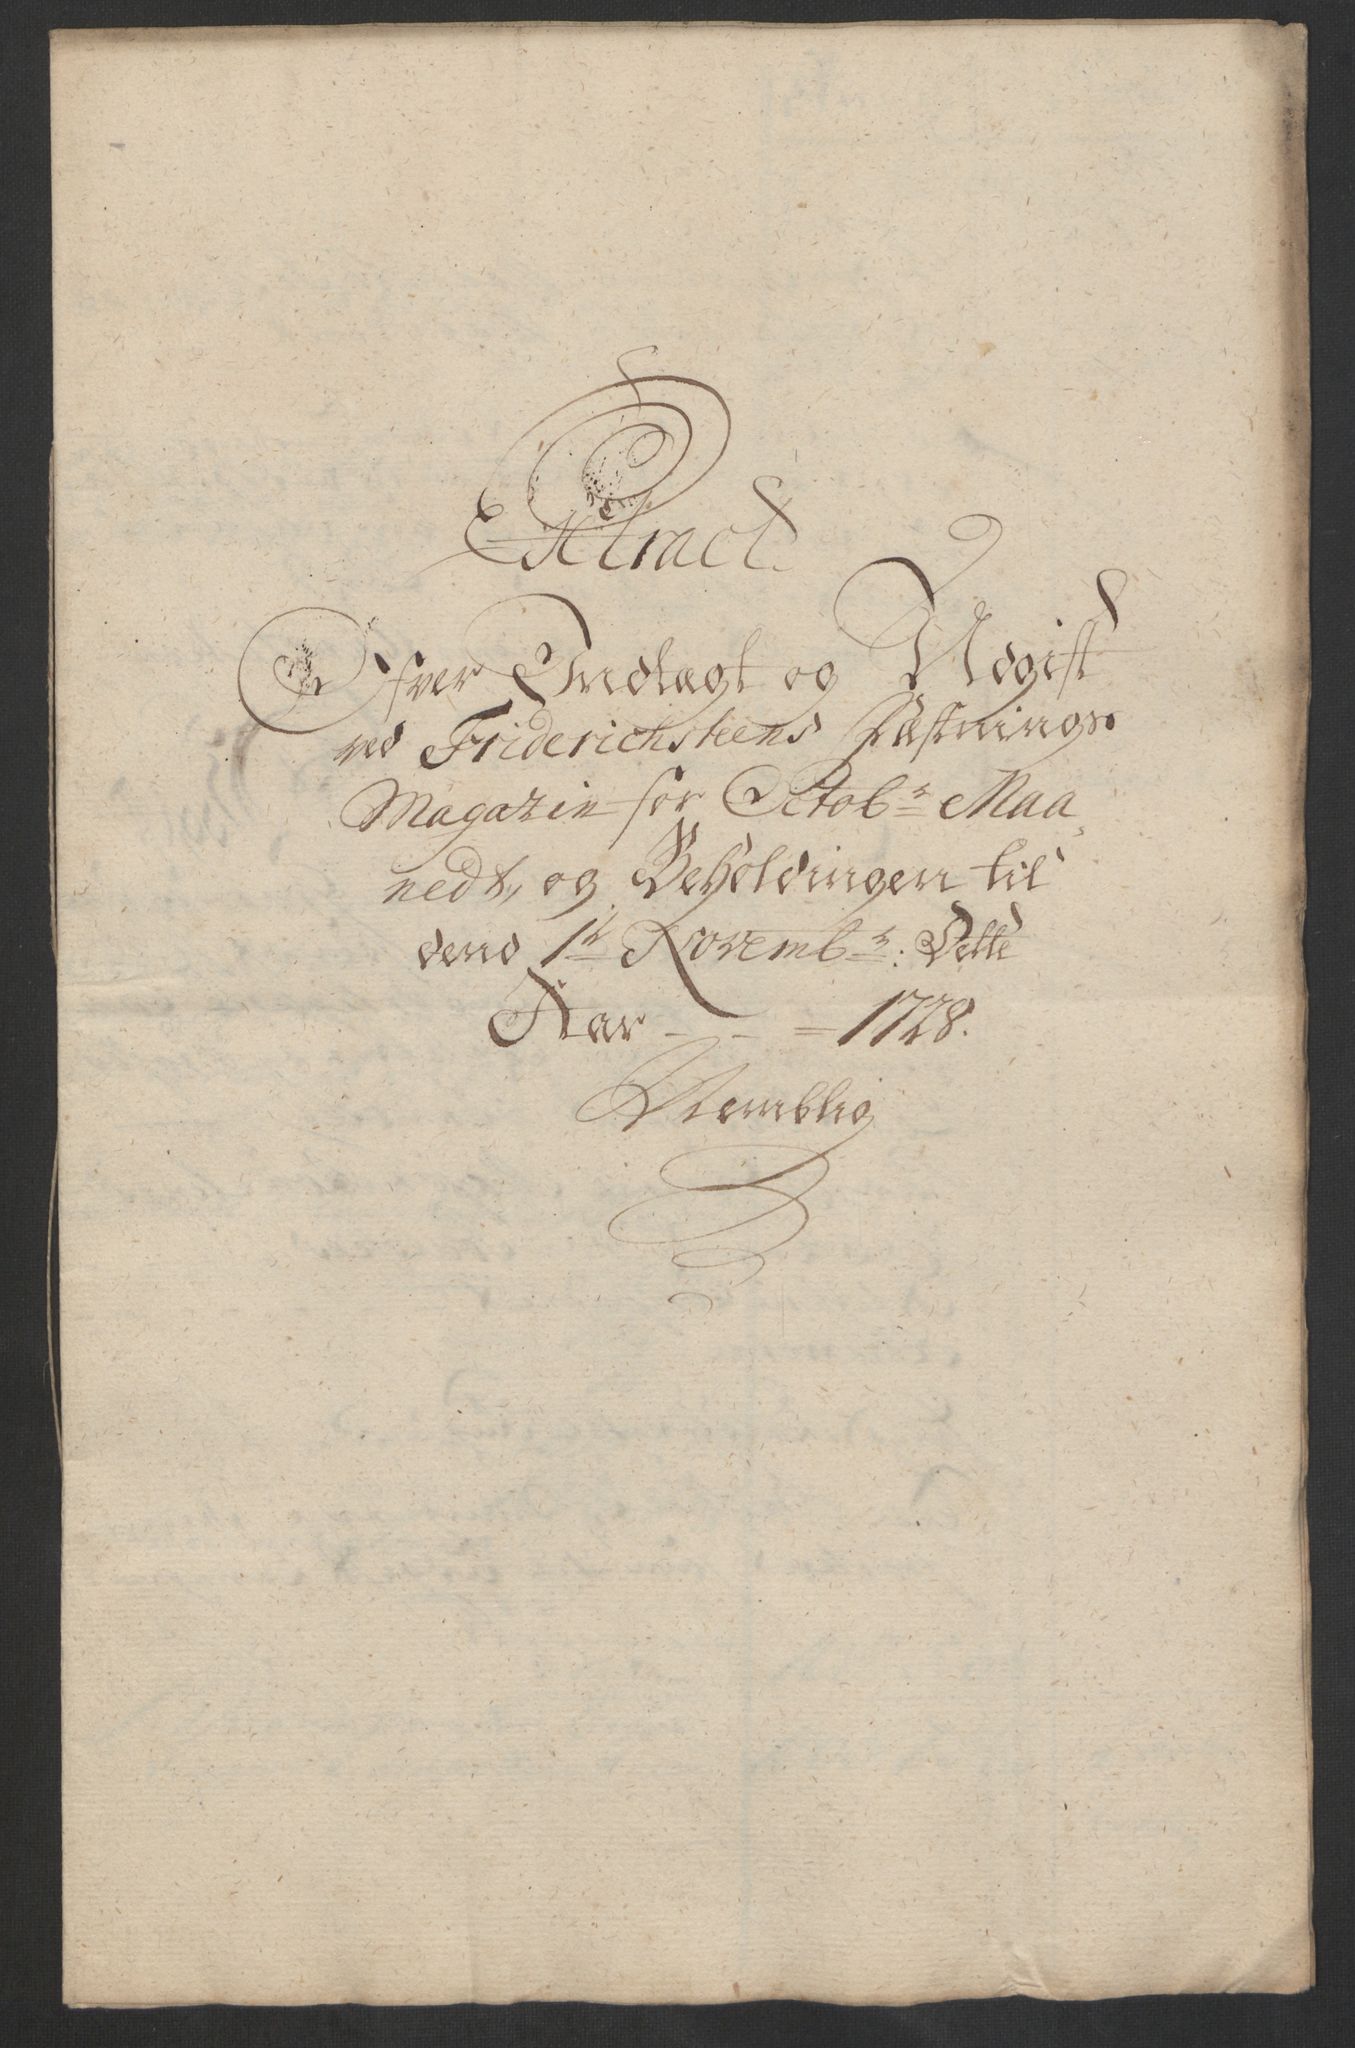 Extract
Ofver Indtægt og Udgift
ved Friderichsteens Fæstnings
Magazin for Octobr Maa
nedt, og Beholdingen til
dend 1te Novembr: Dette
Aar - - = 1728.
Nemblig